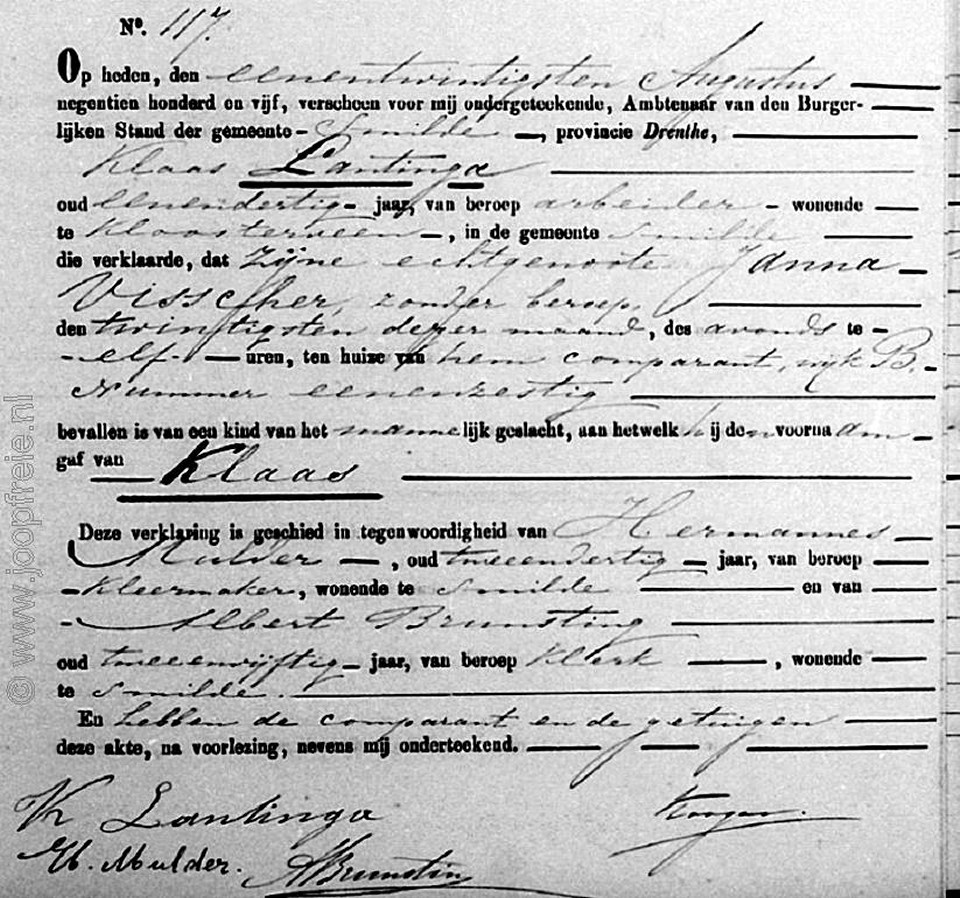 No. 117.
Op heden, den eenentwintigsten Augustus
negentien honderd en vijf, verscheen voor mij ondergeteekende, Ambtenaar van den Burger-
lijken Stand der gemeente Smilde, provincie Drenthe,
Klaas Lantinga
oud eenendertig jaar, van beroep arbeider wonende
te Kloosterveen, in de gemeente Smilde
die verklaarde, dat zijne echtgenoote Janna
Visscher, zonder beroep,
den twintigsten dezer maand, des avonds te
elf uren, ten huize van hem comparant, wijk B.
Nummer eenenzestig
bevallen is van een kind van het mannelijk geslacht, aan hetwelk hij den voornaam
gaf van Klaas
Deze verklaring is geschied in tegenwoordigheid van Hermannes
Mulder, oud tweeendertig jaar, van beroep
kleermaker, wonende te Smilde en van
Albert Brunsting
oud tweeenvijftig jaar, van beroep klerk, wonende
te Smilde.
En hebben de comparant en de getuigen
deze akte, na voorlezing, nevens mij onderteekend.
K Lantinga
H. Mulder.
ABrunsting
© www.joopfreie.nl